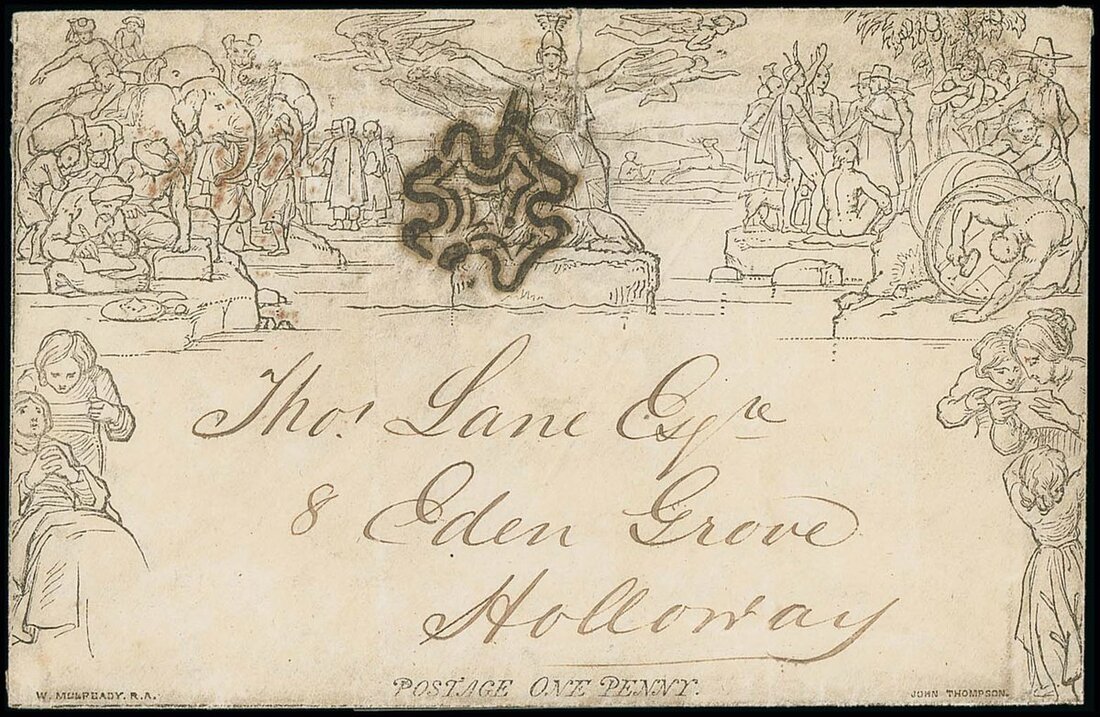 Thos. Lane Esqre
8 Eden Grove
Holloway
POSTAGE ONE PENNY.
W. MULREADY. R.A.
JOHN THOMPSON.